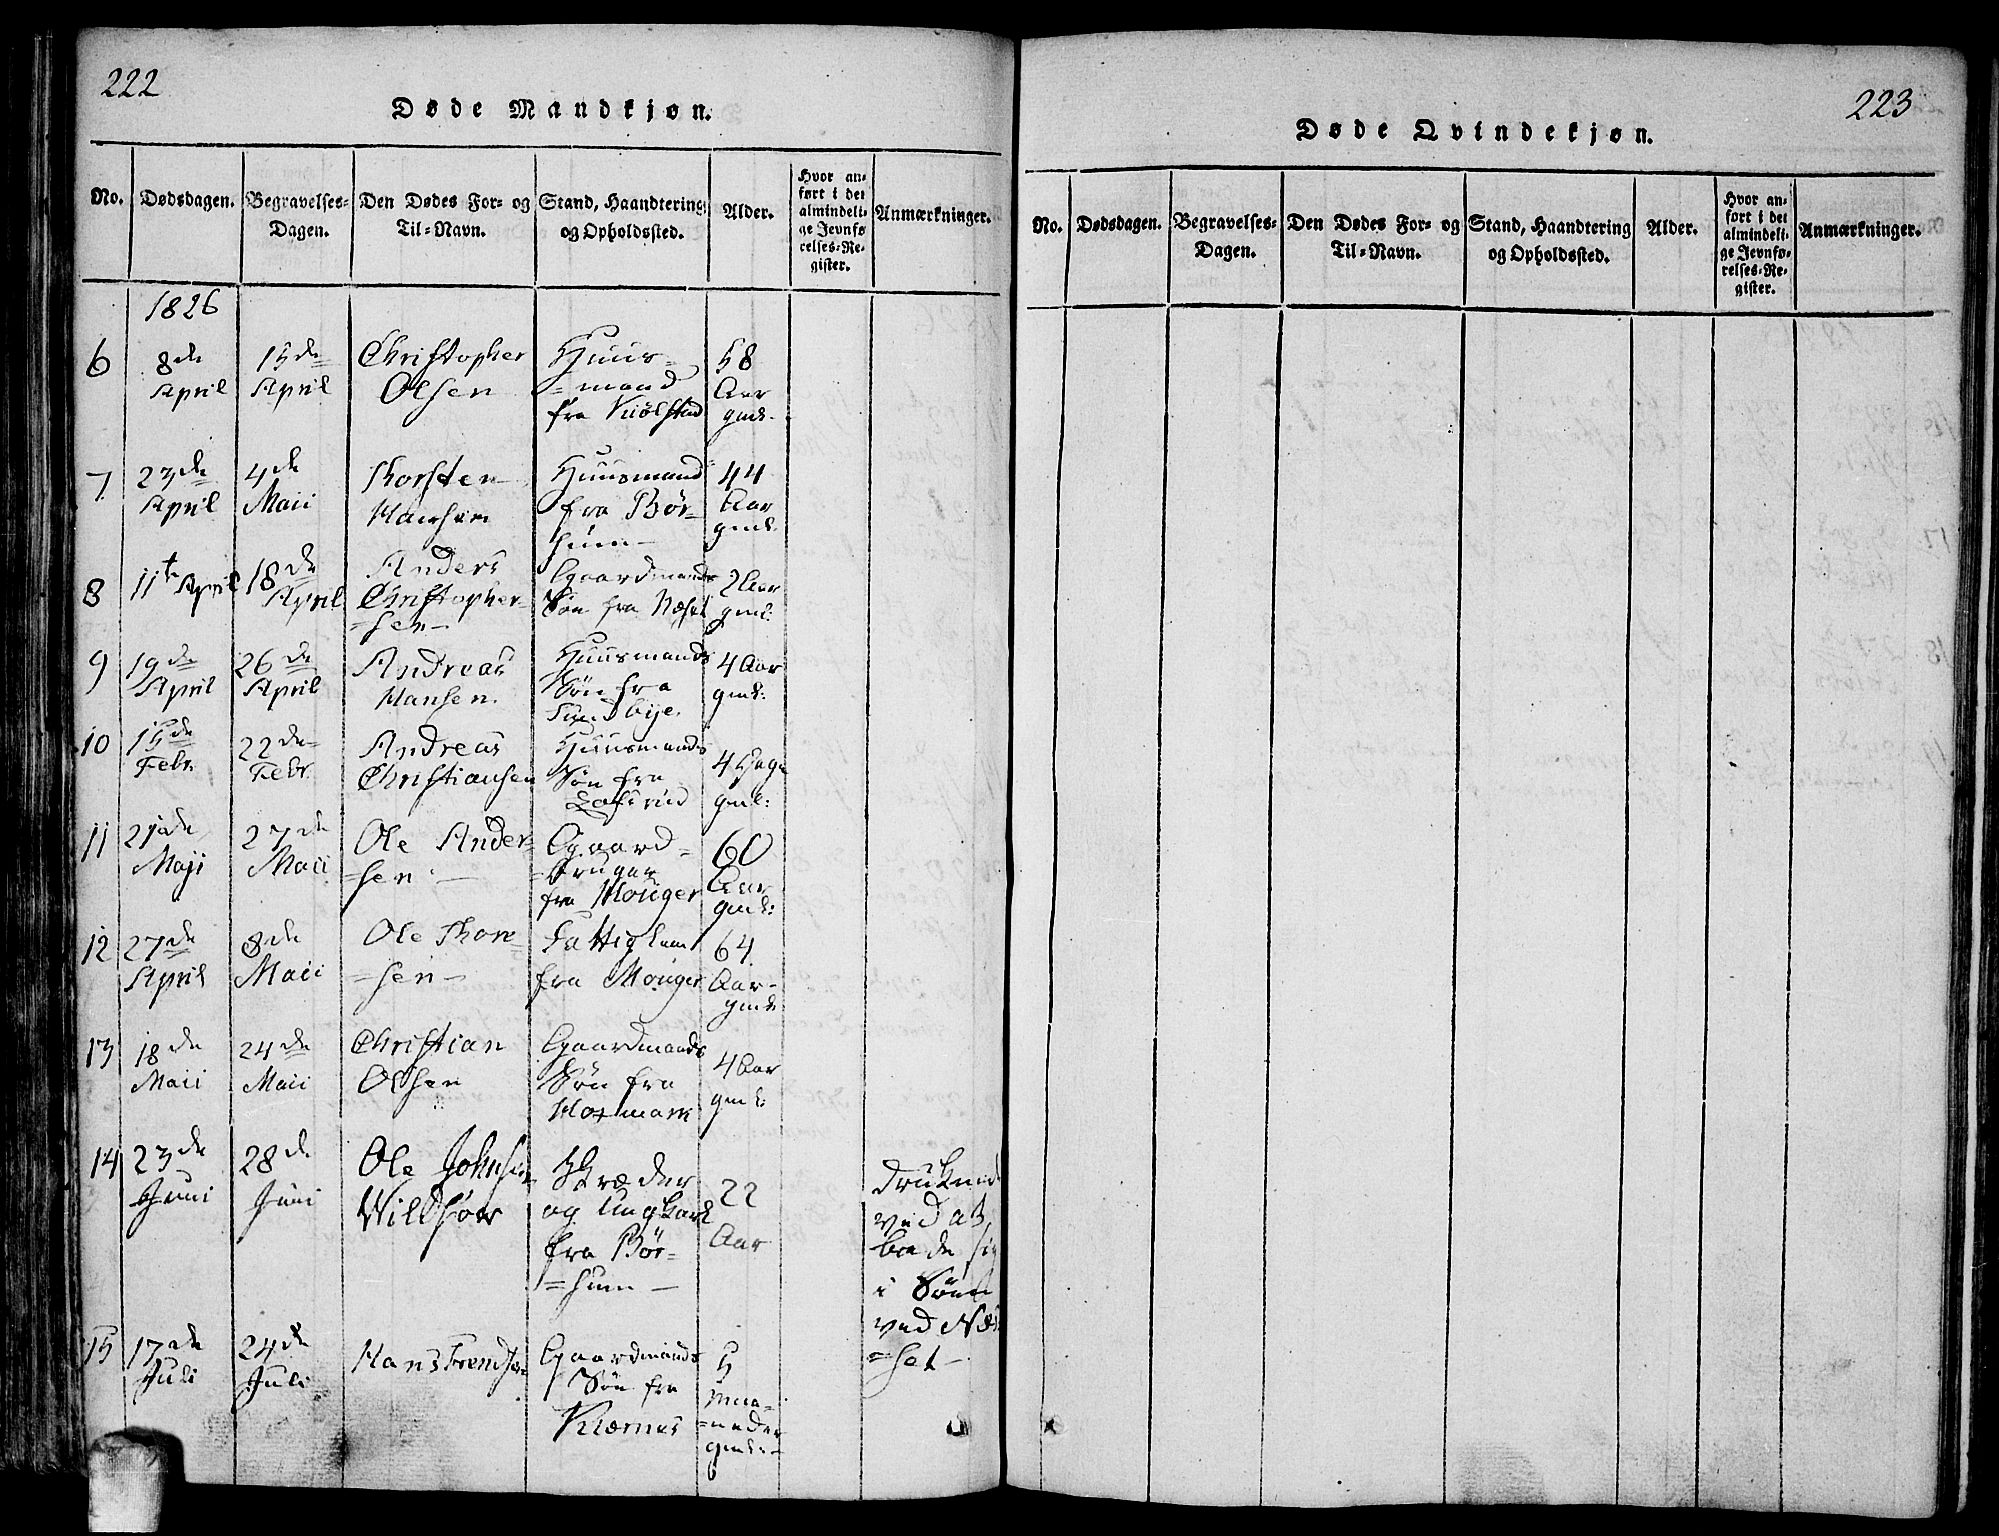 222
Døde Mandkjøn.
No.
Dødsdagen.
Begravelses-
Dagen.
Den Dødes For- og
Til-Navn.
Stand, Haandtering
og Opholdssted.
Alder.
Hvor an-
ført i det
almindeli-
ge Jevnfø
relses-Re-
gister.
Anmærkninger.
1826
6
8de
April
15de
April
Christopher
Olsen
Huus-
=mand
fra
58
Aar
gml.
7
23de
April
4de
Maii
Thorsten
Hansen
Huusmand
fra Bør-
hum-
44
Aar
gml:
8
11te April
18de
April
Anders
Christopher-
=sen-
Gaardmands
Søn fra Næset
2 Aar
gml:
9
19de
April
26de
April
Andreas
Hansen.
Huusmands
Søn fra
Sundbije.
4 Aar
gml:
10
15de
Febr.
22de
Febr.
Andreas
Christiansen
Huusmands
Søn fra
4 Uger
gml:
11
21de
Maji
27de
Maii
Ole Ander-
=sen-
Gaard-
=bruger
fra Mouger
60
Aar
gml:
12
27de
April
8de
Maii
Ole Thore-
=sen-
Fattiglem
fra Mouger
64
Aar-
gml:
13
18de
Maii
24de
Maii
Christian
Olsen
Gaardmands
Søn fra
4 Aar
gml:
14
23de
Juni
28de
Juni
Ole Johnsen
Skræder
og Ungkarl
fra Bør-
=hum-
22
Aar
druknede
ved at
bade sig
i Søen
ved Næ-
=set-
15
17de
Juli
24de
Juli
Hans
Gaardmands
Søn fra
Kiærnes
5
Maa-
=neder
gml:-
223
Døde Qvindekjøn.
No.
Dødsdagen.
Begravelses-
Dagen.
Den Dødes For- og
Til-Navn.
Stand, Haandtering
og Opholdssted.
Alder.
Hvor an-
ført i det
almindeli-
ge Jevnfø-
relses-Re-
gister.
Anmærkninger.